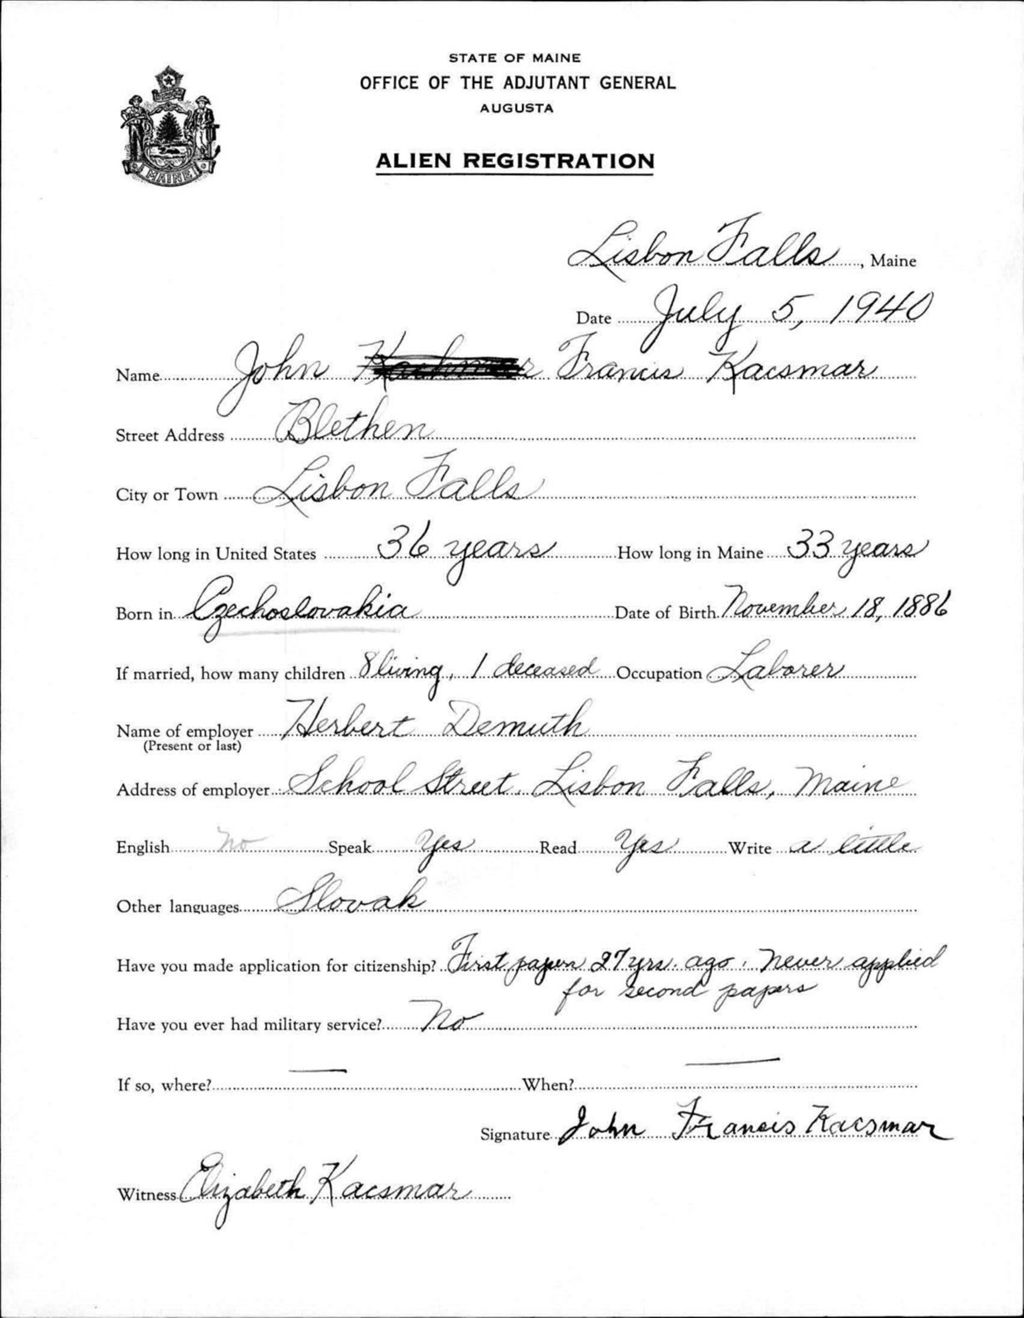 STATE OF MAINE
OFFICE OF THE ADJUTANT GENERAL
AUGUSTA
ALIEN REGISTRATION
MAINE
Lisbon Falls, Maine
Date July 5, 1940
Name John Francis Kacsmar
Street Address Blethen
City or Town Lisbon Falls
How long in United States 36 years How long in Maine 33 years
Born in Czechoslovakia Date of Birth November 18, 1886
If married, how many children 8 living, 1 deceased Occupation Laborer
Name of employer Herbert Demuth
(Present or last)
Address of employer School Street, Lisbon Falls, Maine
English No Speak Yes Read Yes Write a little
Other languages Slovak
Have you made application for citizenship? First papers 27 yrs. ago. Never applied
for second papers
Have you ever had military service? No
If so, where? — When? —
Signature John Francis Kacsmar
Witness Elizabeth Kacsmar